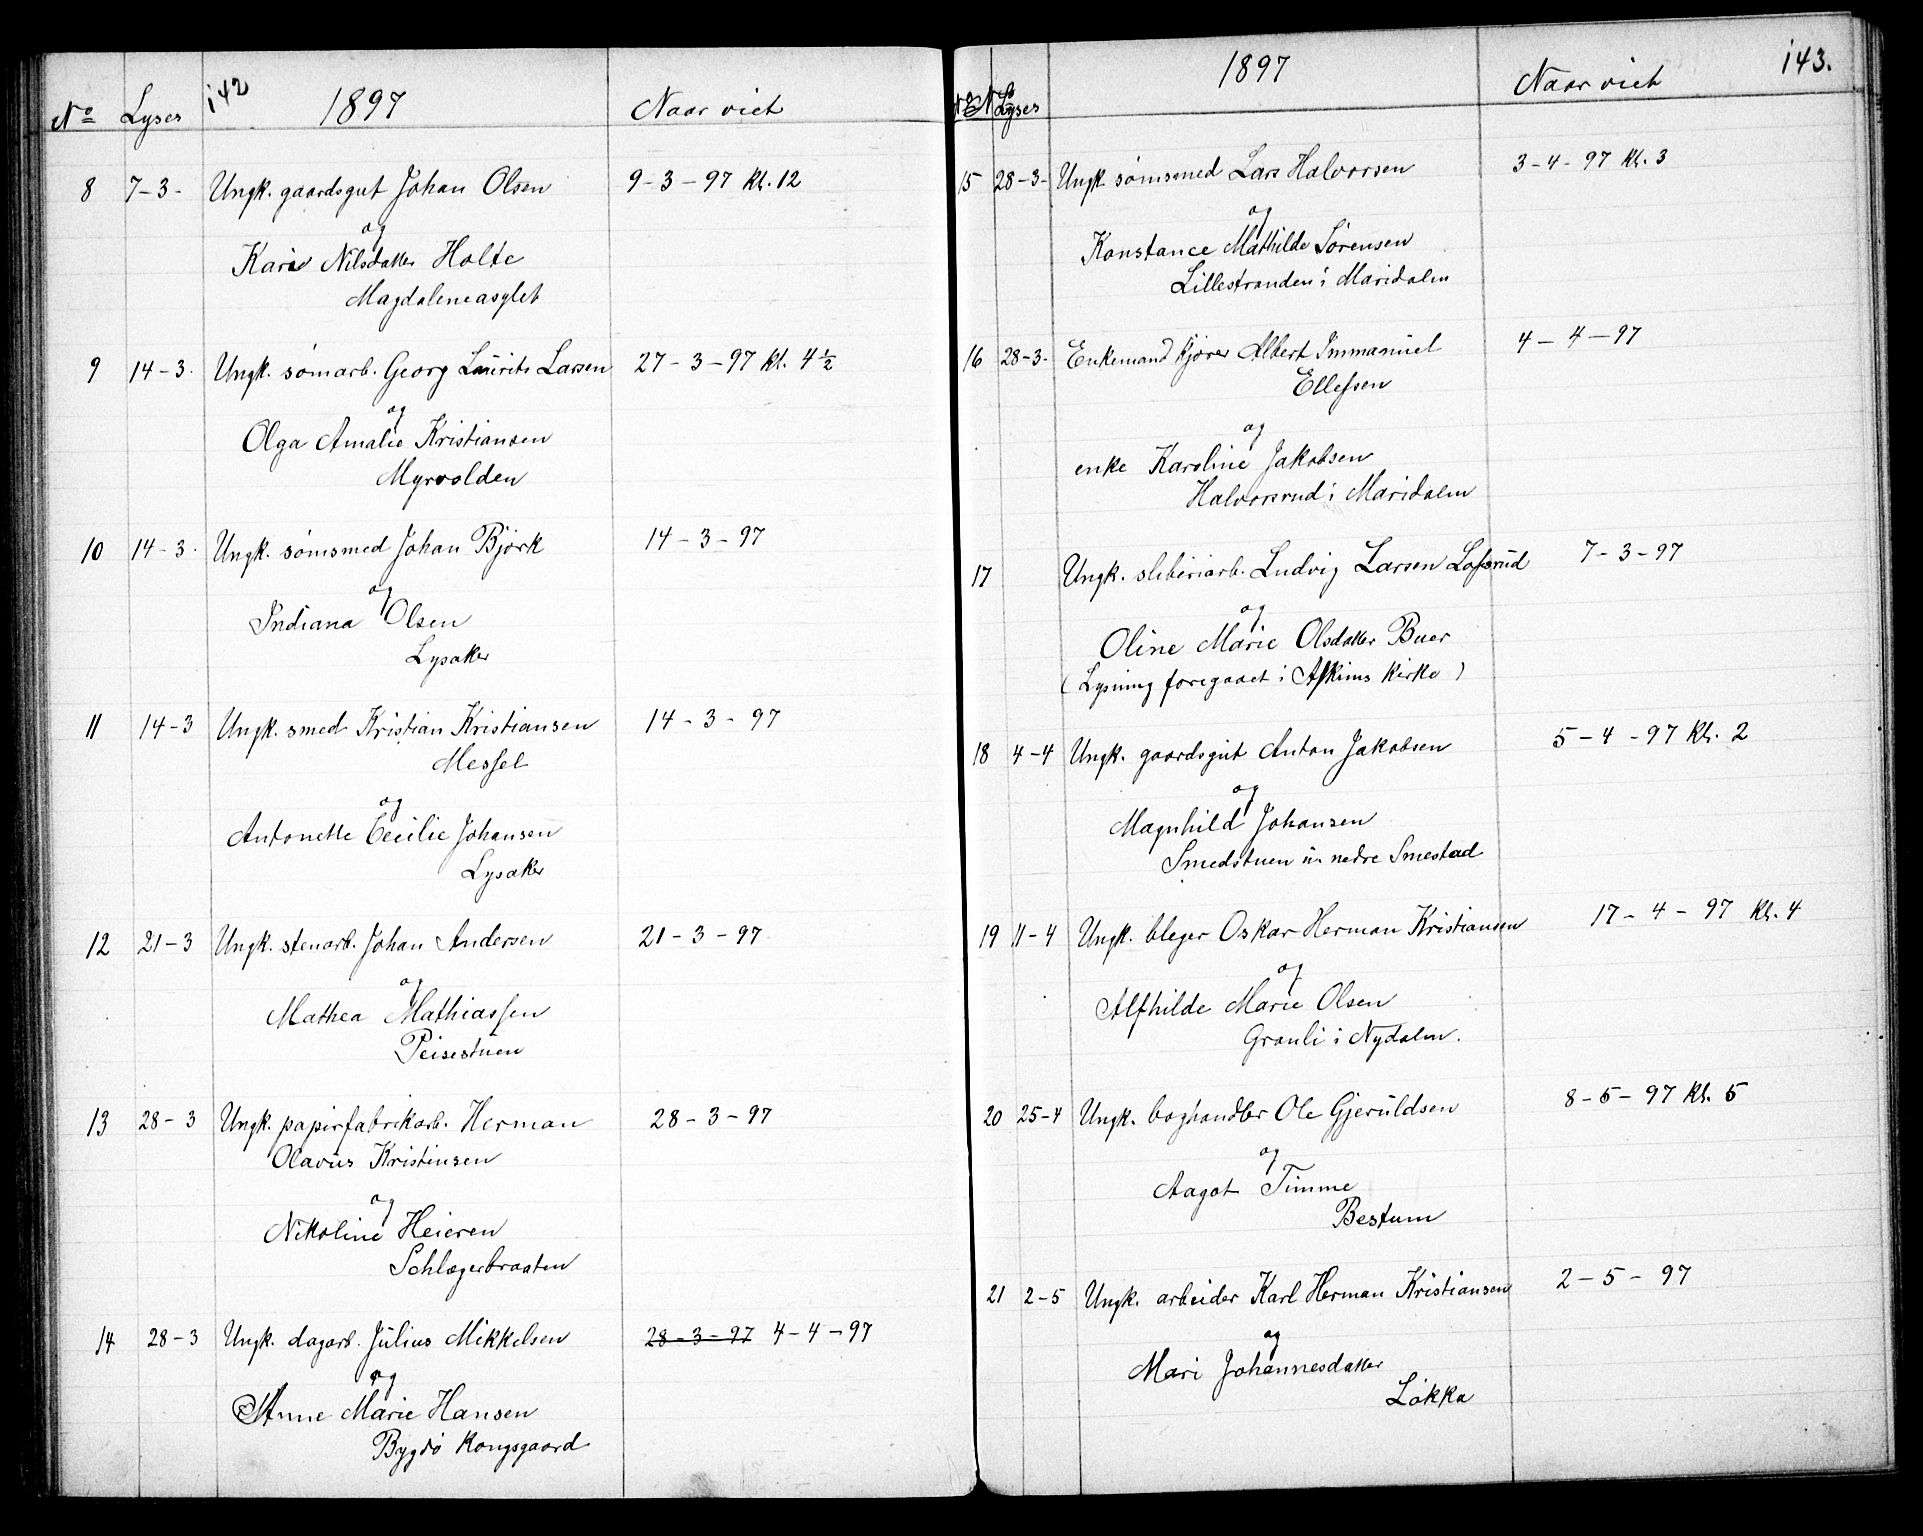 142
No Lyses 1897 Naar viet
8 7-3- Ungk. gaardsgut Johan Olsen 9-3-97 kl. 12
og
Kari Nilsdatter Holte
Magdaleneasylet
9 14-3. Ungk. sømarb. Georg Laurits Larsen 27-3-97 kl. 4 1/2
og
Olga Amalie Kristiansen
Myrvolden
10 14-3. Ungk. sømsmed Johan Björk 14-3-97
og
Indiana Olsen
Lysaker
11 14-3 Ungk. smed Kristian Kristiansen 14-3-97
Messel
og
Antonette Cecilie Johansen
Lysaker
12 21-3 Ungk. stenarb. Johan Andersen 21-3-97
og
Mathea Mathiassen
Peisestuen
13 28-3 Ungk. papirfabrikarb. Herman 28-3-97
Olavus Kristinsen
og
Nikoline Heieren
Schlægerbraaten
14 28-3 Ungk. dagarb. Julius Mikkelsen 28-3-97 4-4-97
og
Anne Marie Hansen
Bygdö Kongsgaard
143.
No Lyses 1897 Naar viet
15 28-3- Ungk sømsmed Lars Halvorsen 3-4-97 kl. 3
og
Konstance Mathilde Sörensen
Lillestranden i Maridalen
16 28-3. Enkemand kjører Albert Immanuel 4-4-97
Ellefsen
og
enke Karoline Jakobsen
Halvorsrud i Maridalen
17 Ungk. sliberiarb. Ludvig Larsen Lofsrud 7-3-97
og
Oline Marie Olsdatter Buer
(Lysning foregaaet i Askims kirke)
18 4-4 Ungk. gaardsgut Anton Jakobsen 5-4-97 kl. 2
og
Magnhild Johansen
Smedstuen u. nedre Smestad
19 11-4 Ungk. bleger Oskar Herman Kristiansen 17-4-97 kl. 4
og
Alfhilde Marie Olsen
Granli i Nydalen.
20 25-4 Ungk. boghandler Ole Gjeruldsen 8-5-97 kl. 5
og
Aagot Timme
Bestum
21 2-5 Ungk. arbeider Karl Herman Kristiansen 2-5-97
og
Mari Johannesdatter
Lökka